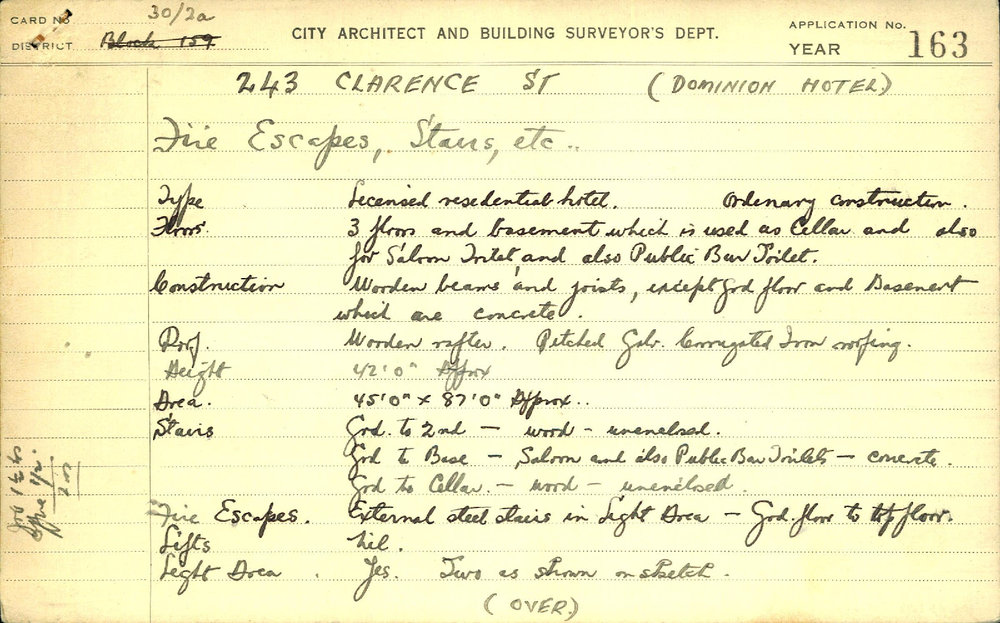 CARD No. 30/2a
DISTRICT Block 159
CITY ARCHITECT AND BUILDING SURVEYOR'S DEPT.
APPLICATION No.
YEAR 163
243 CLARENCE ST (DOMINION HOTEL)
Fire Escapes, Stairs, etc..
Type Licensed resedential hotel. Ordinary construction.
Floors 3 floors and basement which is used as Cellar and also
for Saloon Toilet and also Public Bar Toilet.
Construction Wooden beams and joists, except Grd floor and Basement
which are concrete.
Roof. Wooden rafter. Pitched Galv. Corrugated Iron roofing.
Height 42'0" Approx
Area. 45'0" x 87'0" Approx..
Stairs Grd. to 2nd — wood — unenclosed.
Grd to Base — Saloon and also Public Bar Toilets — concrete.
Grd to Cellar. — wood — unenclosed.
Fire Escapes. External steel stairs in Light Area — Grd. floor to top floor.
Lifts Nil.
Light Area . Yes. Two as shown on sketch.
(OVER)